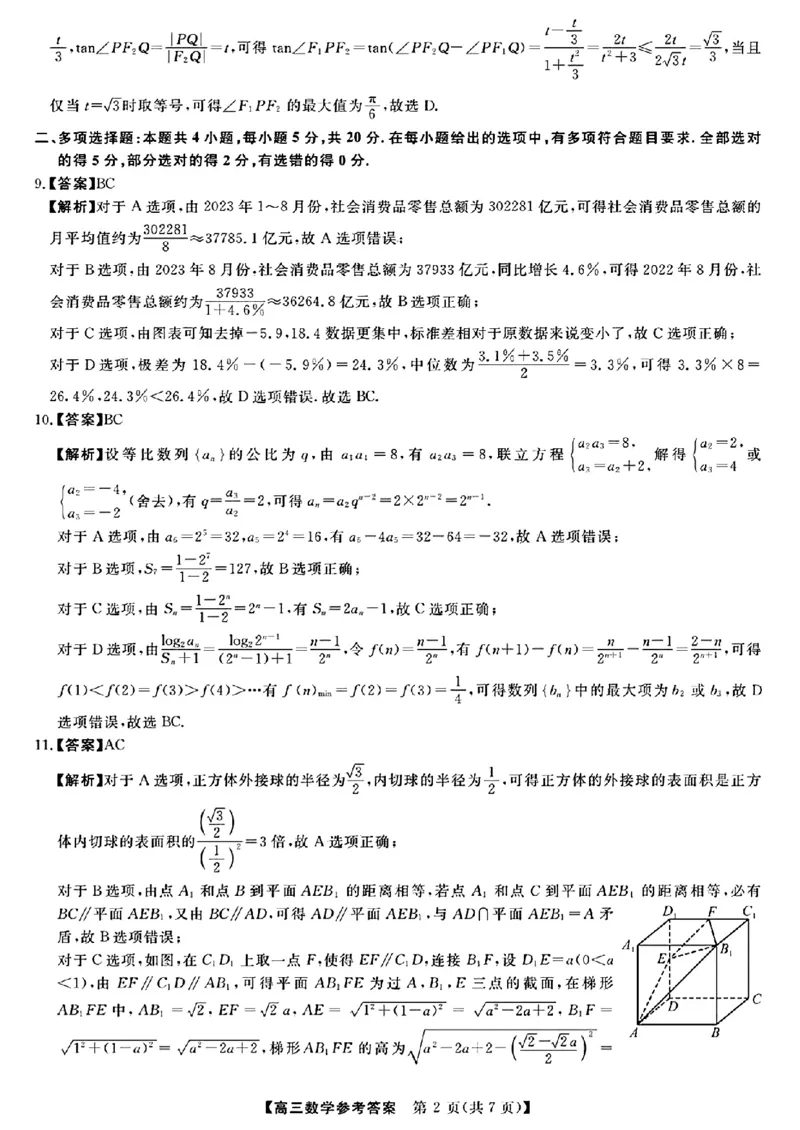 t/3, tan∠PF₂Q=|PQ|/|F₂Q|=t,可得 tan∠F₁PF₂=tan(∠PF₂Q-∠PF₁Q)=(t-t/3)/(1+t²/3)=2t/(t²+3)≤2t/(2√3t)=√3/3,当且
仅当 t=√3时取等号,可得∠F₁PF₂ 的最大值为π/6,故选 D.
二、多项选择题:本题共 4 小题,每小题 5 分,共 20 分.在每小题给出的选项中,有多项符合题目要求.全部选对
的得 5 分,部分选对的得 2 分,有选错的得 0 分.
9.【答案】BC
【解析】对于 A 选项,由 2023 年 1~8 月份,社会消费品零售总额为 302281 亿元,可得社会消费品零售总额的
月平均值约为302281/8≈37785.1亿元,故 A 选项错误;
对于 B 选项,由 2023 年 8 月份,社会消费品零售总额为 37933 亿元,同比增长 4.6%,可得 2022 年 8 月份,社
会消费品零售总额约为37933/(1+4.6%)≈36264.8 亿元,故 B 选项正确;
对于 C 选项,由图表可知去掉-5.9,18.4 数据更集中,标准差相对于原数据来说变小了,故 C 选项正确;
对于 D 选项,极差为 18.4%-(-5.9%)=24.3%,中位数为(3.1%+3.5%)/2=3.3%,可得 3.3%×8=
26.4%,24.3%<26.4%,故 D 选项错误.故选 BC.
10.【答案】BC
【解析】设等比数列{aₙ}的公比为 q,由 a₁a₄=8,有 a₂a₃=8,联立方程{a₂a₃=8, a₃=a₂+2, 解得{a₂=2, a₃=4 或
{a₂=-4, a₃=-2 (舍去),有 q=a₃/a₂=2,可得 aₙ=a₂qⁿ⁻²=2×2ⁿ⁻²=2ⁿ⁻¹.
对于 A 选项,由 a₆=2⁵=32,a₅=2⁴=16,有 a₆-4a₅=32-64=-32,故 A 选项错误;
对于 B 选项,S₇=(1-2⁷)/(1-2)=127,故 B 选项正确;
对于 C 选项,由 Sₙ=(1-2ⁿ)/(1-2)=2ⁿ-1,有 Sₙ=2aₙ-1,故 C 选项正确;
对于 D 选项,由log₂aₙ/(Sₙ+1)=log₂2ⁿ⁻¹/((2ⁿ-1)+1)=(n-1)/2ⁿ,令 f(n)=(n-1)/2ⁿ,有 f(n+1)-f(n)=n/2ⁿ⁺¹-(n-1)/2ⁿ=(2-n)/2ⁿ⁺¹,可得
f(1)<f(2)=f(3)>f(4)>⋯有 f(n)min=f(2)=f(3)=1/4,可得数列{bₙ}中的最大项为 b₂ 或 b₃,故 D
选项错误,故选 BC.
11.【答案】AC
【解析】对于 A 选项,正方体外接球的半径为√3/2,内切球的半径为1/2,可得正方体的外接球的表面积是正方
体内切球的表面积的(√3/2)/(1/2)²=3 倍,故 A 选项正确;
对于 B 选项,由点 A₁ 和点 B 到平面 AEB₁ 的距离相等,若点 A₁ 和点 C 到平面 AEB₁ 的距离相等,必有
BC∥平面 AEB₁,又由 BC∥AD,可得 AD∥平面 AEB₁,与 AD∩平面 AEB₁=A 矛
盾,故 B 选项错误;
对于 C 选项,如图,在 C₁D₁ 上取一点 F,使得 EF∥C₁D,连接 B₁F,设 D₁E=a(0<a
<1),由 EF∥C₁D∥AB₁,可得平面 AB₁FE 为过 A,B₁,E 三点的截面,在梯形
AB₁FE 中,AB₁=√2,EF=√2a,AE=√(1²+(1-a)²)=√(a²-2a+2),B₁F=
√(1²+(1-a)²)=√(a²-2a+2),梯形AB₁FE 的高为√(a²-2a+2-((√2-√2a)/2)²)=
D₁ F C₁
A₁ B₁
E
D C
A B
【高三数学参考答案 第 2 页(共 7 页)】